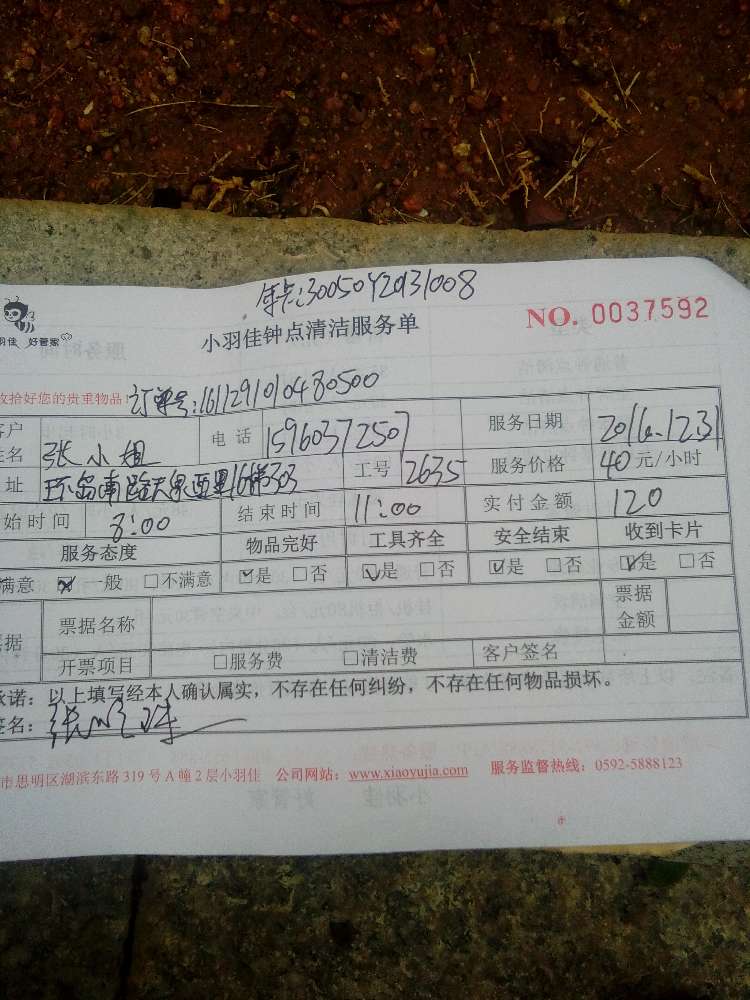 年卡:30050Y20131008
NO. 0037592
羽佳 好管家
小羽佳钟点清洁服务单
收拾好您的贵重物品! 订单号:1611291010480500
客户姓名 张小姐 电话 15960372507 服务日期 2016.12.31
址 环岛南路天泉西里16梯303 工号 2635 服务价格 40元/小时
始时间 8:00 结束时间 11:00 实付金额 120
服务态度 物品完好 工具齐全 安全结束 收到卡片
满意 一般 □不满意 ☑是 □否 ☑是 □否 ☑是 □否 ☑是 □否
据 票据名称 票据金额
开票项目 □服务费 □清洁费 客户签名
承诺:以上填写经本人确认属实,不存在任何纠纷,不存在任何物品损坏。
签名:
市思明区湖滨东路319号A幢2层小羽佳 公司网站:www.xiaoyujia.com 服务监督热线:0592-5888123